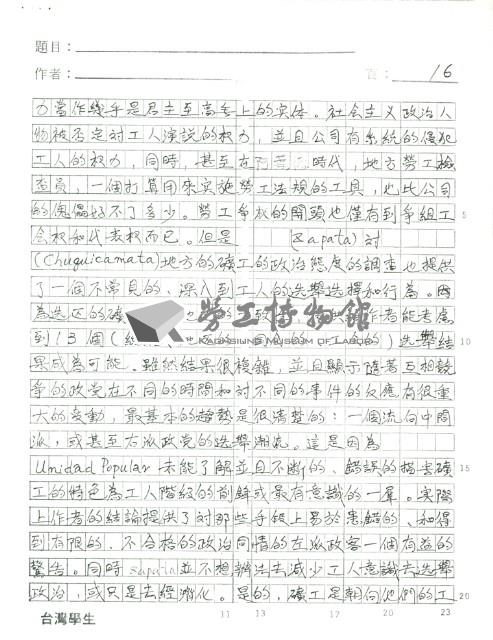 題目：
作者：
頁：16
力當作幾乎是君主至高無上的实体。社会主义政治人
物被否定对工人演説的权力，並且公司有系統的侵犯
工人的权力，同時，甚至在 時代，地方勞工檢
查員，一個打算用來实施勞工法規的工具，也比公司
的傀儡好不了多少。勞工爭权的開頭也僅有到爭組工
会权和代表权而已。但是 (Zapata) 对
(Chuguicamata)地方的礦工的政治態度的調查也提供
了一個不常見的，深入到工人的选舉选擇和行為。因
為选区的礦 作者能考慮
到13個 选舉結
果成為可能。雖然結果很複雜，並且顯示隨著互相競
爭的政党在不同的時間和对不同的事件的反應有很重
大的变動，最基本的趨勢是很清楚的：一個流向中間
派，或甚至右派政党的选舉潮流。這是因為
Unidad Popular 未能了解並且不断的、錯誤的描去礦
工的特色為工人階級的 或最有意識的一羣。实際
上作者的結論提供了对那些手段上易於患錯的、和得
到有限的、不合格的政治同情的左派政客一個有益的
警告。同時Zapata並不想辦法去減少工人意識去选舉
政治，或只是去經濟化。是的，礦工是朝向他們的工
5
10
15
20
台灣學生
11 13 17 20 23
勞工博物館
KAOHSIUNG MUSEUM OF LABOR